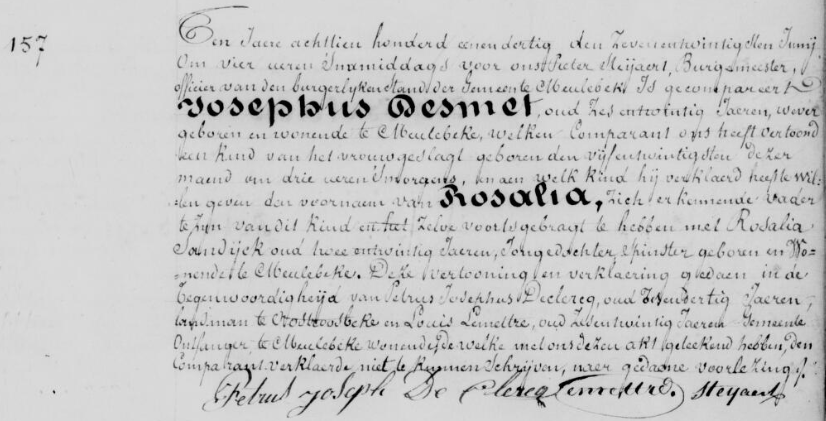 157
Ten Jaere achttien honderd eenendertig den Zevenentwintigsten Junij
Om vier ueren S'namiddags voor ons Pieter Steijaert, Burgemeester,
officier van den burgerlyken stand der Gemeente Meulebeke, Is gecompareert
Josephus Desmet, oud Zes entwintig Jaeren, wever
geboren en wonende te Meulebeke, welken Comparant ons heeft vertoond
een Kind van het vrouwgeslagt geboren den vijfentwintigsten dezer
maend om drie ueren S'morgens, en aen welk kind hij verklaerd heeft te wil-
len geven den voornaem van Rosalia, Zich erkennende vader
te Zyn van dit Kind en het Zelve voortsgebragt te hebben met Rosalia
oud twee entwintig Jaeren, Jongedochter, Spinster geboren en Wo-
nende te Meulebeke. Deze vertooning en verklaering gedaen in de
tegenwoordigheijd van Petrus Josephus Declercq, oud Jaeren,
landsman te Oostroosbeke en Louis Lemettre, oud Zesentwintig Jaeren Gemeente
Ontfanger, te Meulebeke wonende, de welke met ons dezen akt geteekend hebben, den
Comparant verklaerde niet te kunnen Schrijven, naer gedaene voorlezing.
Petrus Joseph De Clercq Lemettre. Steyaert